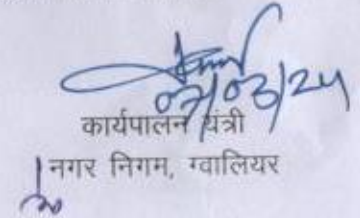 07/03/24
कार्यपालन यंत्री
नगर निगम, ग्वालियर